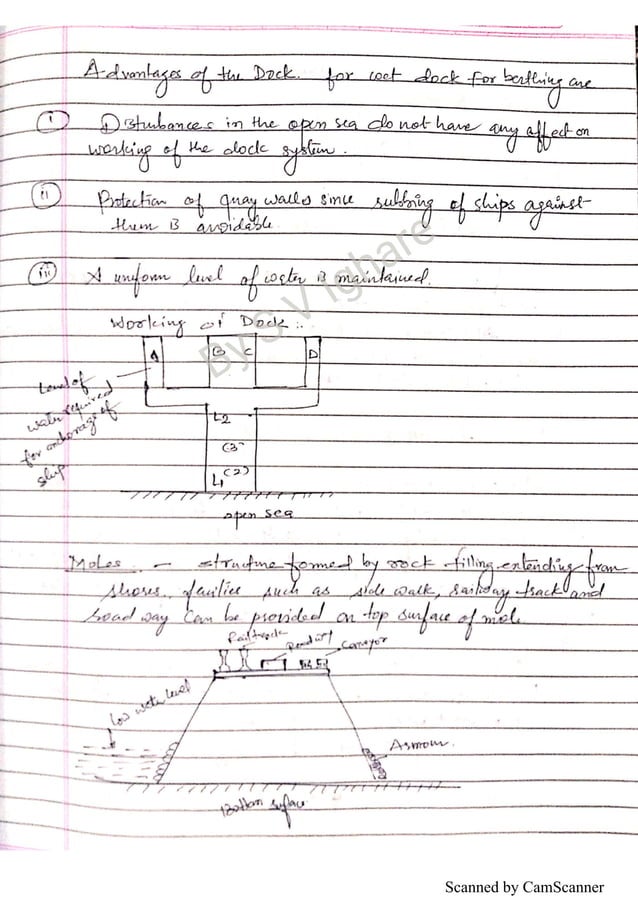 Advantages of the Dock. for wet dock for berthing are
i Disturbances in the open sea do not have any affect on
working of the dock system.
ii Protection of quay walls since rubbing of ships against
them is avoidable
iii A uniform level of water is maintained.
Working of Dock :.
A B C D
Level of
water required
for anchorage of
ship
L2
(3)
L1 (2)
open sea
Moles. - structure formed by rock filling extending from
shores. facilities such as side walk, railway track and
road way can be provided on top surface of mole
Rail track
Roadway
Conveyor
Low water level
Armour.
Bottom surface
By S V Ighare
Scanned by CamScanner